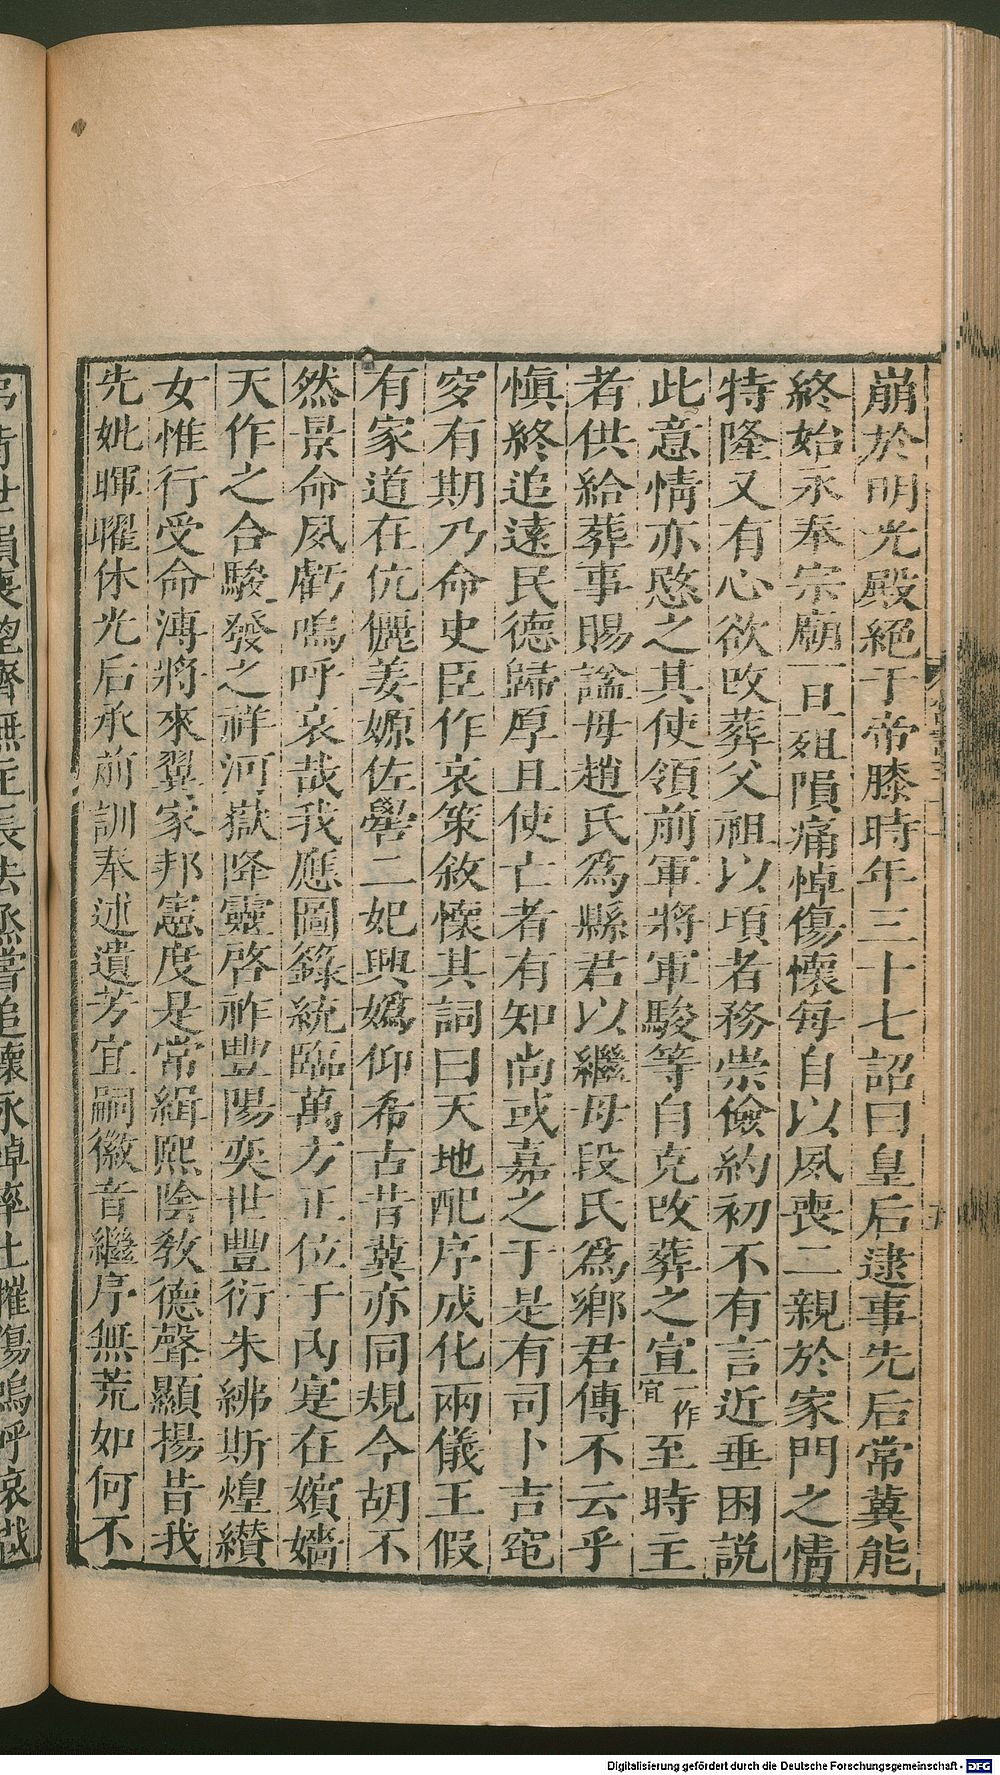 崩於明光殿絕于帝膝時年三十七詔曰皇后逮事先后常冀能
終始永奉宗廟一旦殂隕痛悼傷懷每自以夙喪二親於家門之情
特隆又有心欲改葬父祖以頃者務崇儉約初不有言近垂困說
此意情亦愍之其使領前軍將軍駿等自克改葬之宣一作宜至時主
者供給葬事賜諡母趙氏爲縣君以繼母段氏爲鄉君傳不云乎
慎終追遠民德歸厚且使亡者有知尚或嘉之于是有司卜吉窀
穸有期乃命史臣作哀策敘懷其詞曰天地配序成化兩儀王假
有家道在伉儷姜嫄佐嚳二妃興嬀仰希古昔冀亦同規今胡不
然景命夙虧嗚呼哀哉我應圖籙統臨萬方正位于內寔在嬪嬙
天作之合駿發之祥河嶽降靈啓祚豐陽奕世豐衍朱紼斯煌纘
女惟行受命溥將來翼家邦憲度是常緝熙陰教德聲顯揚昔我
先妣暉曜休光后承前訓奉述遺芳宜嗣徽音繼序無荒如何不
弔背世隕喪望齊無主長去烝嘗追懷永悼率土摧傷嗚呼哀哉
Digitalisierung gefördert durch die Deutsche Forschungsgemeinschaft - DFG